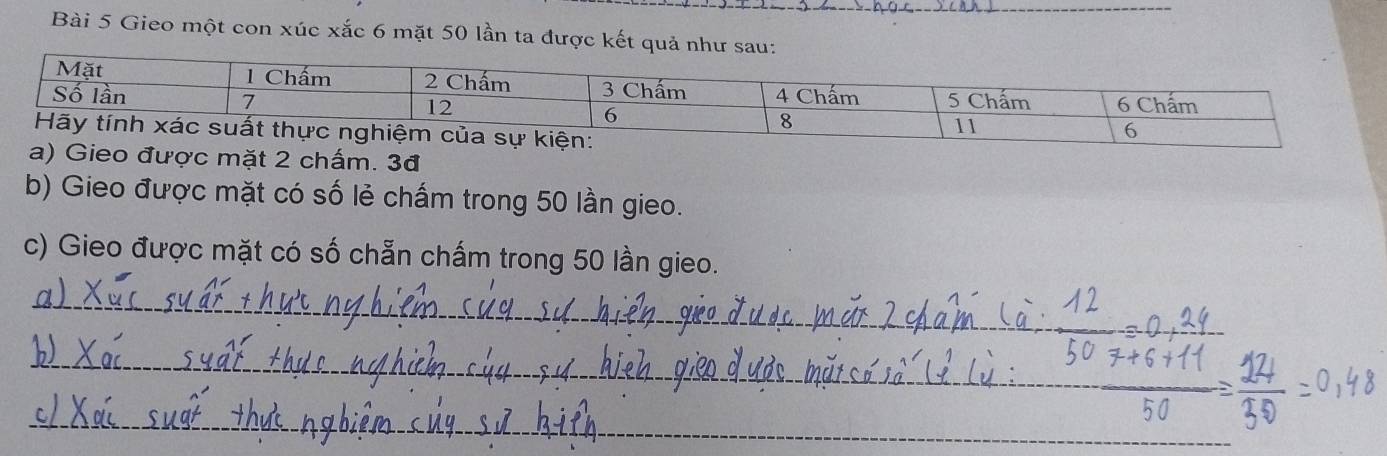 Bài 5 Gieo một con xúc xắc 6 mặt 50 lần ta được kết quả như sau:
Mặt 1 Chấm 2 Chấm 3 Chấm 4 Chấm 5 Chấm 6 Chấm
Số lần 7 12 6 8 11 6
Hãy tính xác suất thực nghiệm của sự kiện:
a) Gieo được mặt 2 chấm. 3đ
b) Gieo được mặt có số lẻ chấm trong 50 lần gieo.
c) Gieo được mặt có số chẵn chấm trong 50 lần gieo.
a) Xác suất thực nghiệm của sự kiện gieo được mặt 2 chấm là: 12/50 = 0,24
b) Xác suất thực nghiệm của sự kiện gieo được mặt có số lẻ là: (7+6+11)/50 = 24/50 = 0,48
c) Xác suất thực nghiệm của sự kiện